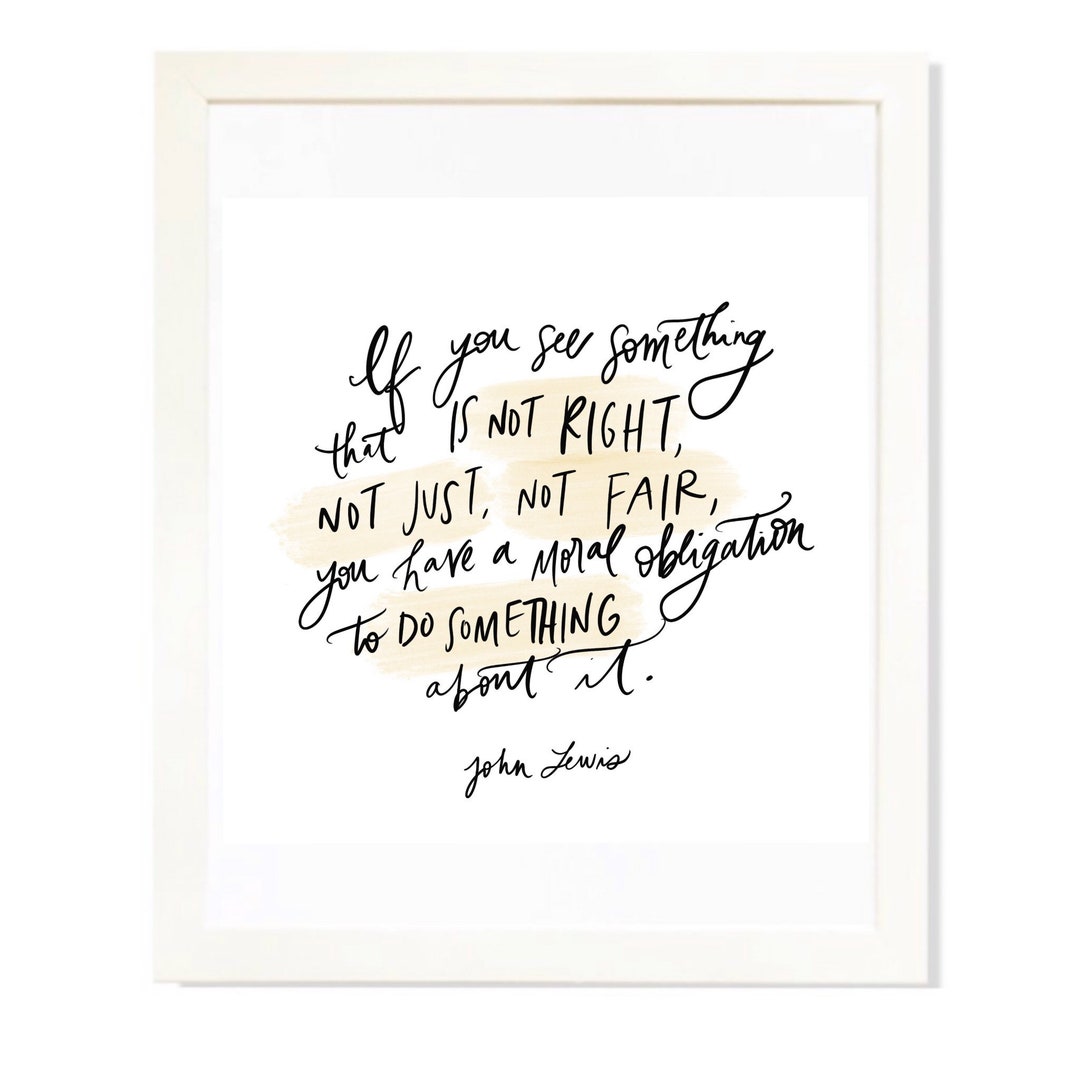 If you see something
that IS NOT RIGHT,
NOT JUST, NOT FAIR,
you have a moral obligation
to DO SOMETHING
about it.
John Lewis